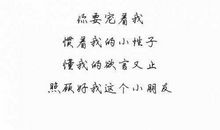 你要宠着我
惯着我的小性子
懂我的欲言又止
照顾好我这个小朋友